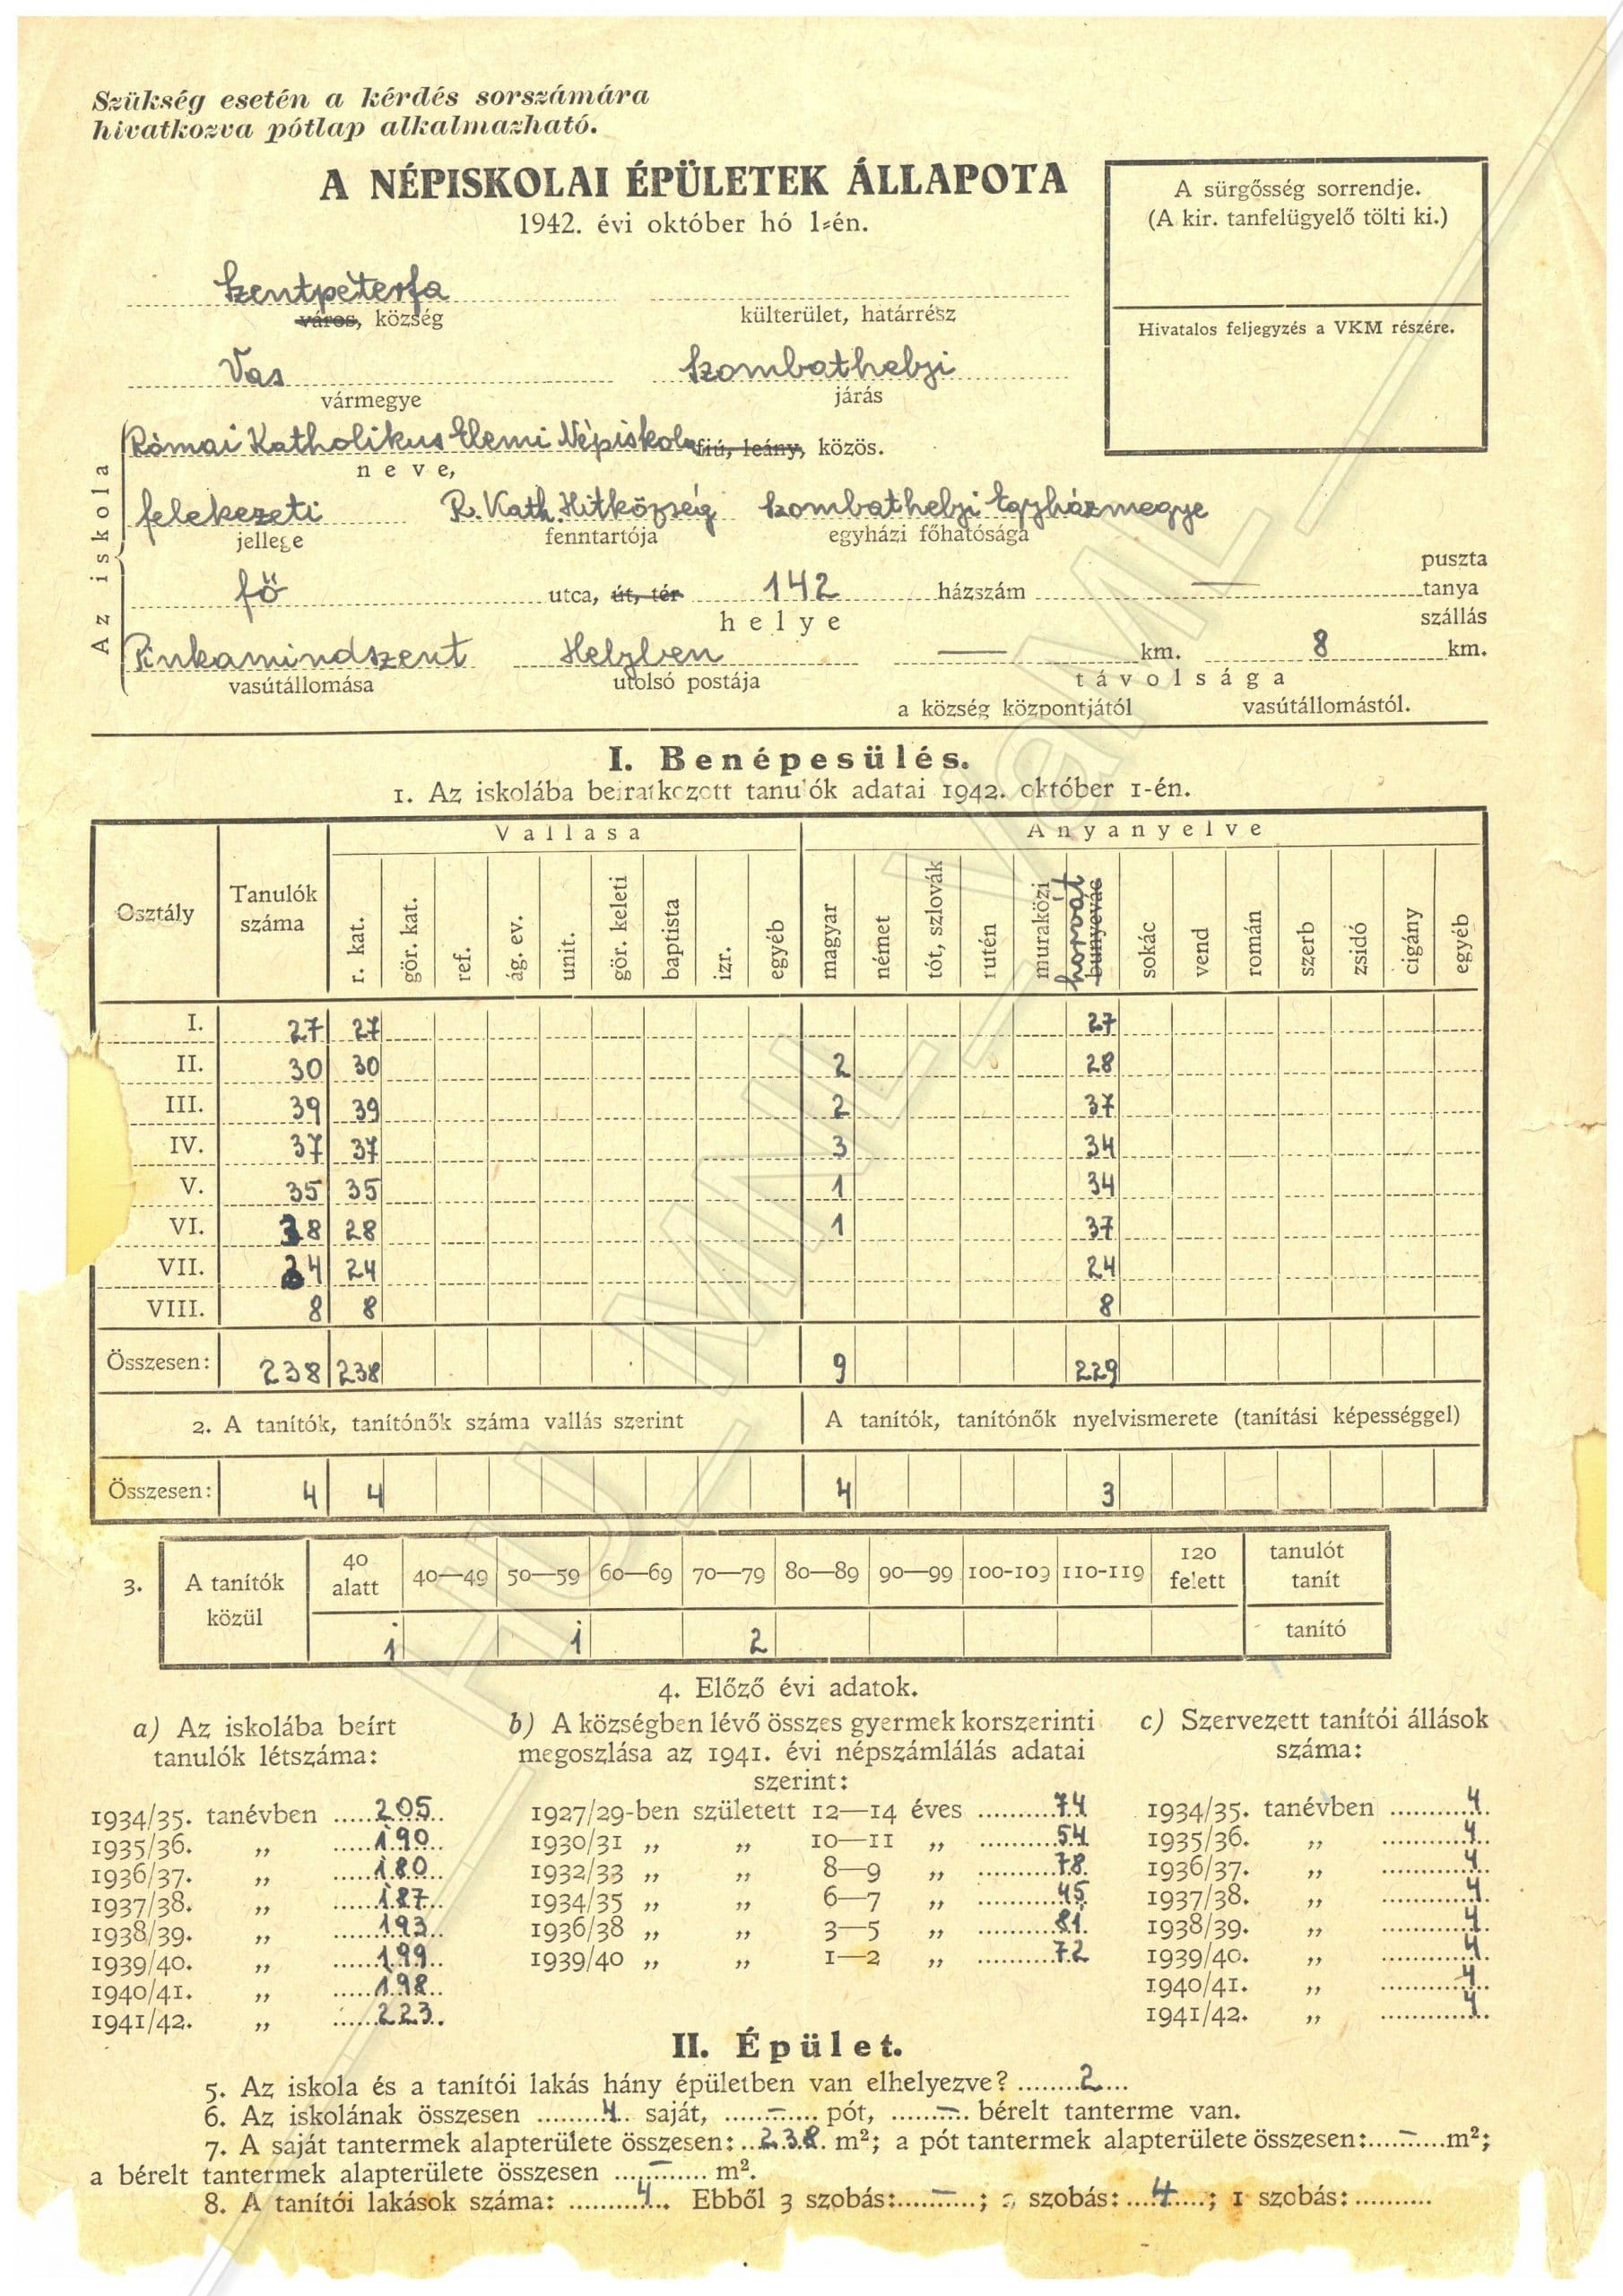 Szükség esetén a kérdés sorszámára
hivatkozva pótlap alkalmazható.
A NÉPISKOLAI ÉPÜLETEK ÁLLAPOTA
1942. évi október hó 1-én.
A sürgősség sorrendje.
(A kir. tanfelügyelő tölti ki.)
Hivatalos feljegyzés a VKM részére.
Szentpéterfa
város, község külterület, határrész
Vas Szombathelyi
vármegye járás
Az iskola
Római Katholikus Elemi Népiskola fiú, leány, közös.
neve,
felekezeti R. Kath. Hitközség Szombathelyi Egyházmegye
jellege fenntartója egyházi főhatósága
puszta
fő utca, út, tér 142 házszám — tanya
helye szállás
Pinkamindszent Helyben — km. 8 km.
vasútállomása utolsó postája távolsága
a község központjától vasútállomástól.
I. Benépesülés.
1. Az iskolába beiratkozott tanulók adatai 1942. október 1-én.
Vallása Anyanyelve
Osztály Tanulók száma r. kat. gör. kat. ref. ág. ev. unit. gör. keleti baptista izr. egyéb magyar német tót, szlovák rutén muraközi horvát bunyevác sokác vend román szerb zsidó cigány egyéb
I. 27 27 27
II. 30 30 2 28
III. 39 39 2 37
IV. 37 37 3 34
V. 35 35 1 34
VI. 38 28 1 37
VII. 24 24 24
VIII. 8 8 8
Összesen: 238 238 9 229
2. A tanítók, tanítónők száma vallás szerint A tanítók, tanítónők nyelvismerete (tanítási képességgel)
Összesen: 4 4 4 3
3. A tanítók közül 40 alatt 40—49 50—59 60—69 70—79 80—89 90—99 100-109 110-119 120 felett tanulót tanít
1 1 2 tanító
4. Előző évi adatok.
a) Az iskolába beírt b) A községben lévő összes gyermek korszerinti c) Szervezett tanítói állások
tanulók létszáma: megoszlása az 1941. évi népszámlálás adatai száma:
szerint:
1934/35. tanévben 205 1927/29-ben született 12—14 éves 74 1934/35. tanévben 4
1935/36. „ 190 1930/31 „ „ 10—11 „ 54 1935/36. „ 4
1936/37. „ 180 1932/33 „ „ 8—9 „ 78 1936/37. „ 4
1937/38. „ 187 1934/35 „ „ 6—7 „ 45 1937/38. „ 4
1938/39. „ 193 1936/38 „ „ 3—5 „ 81 1938/39. „ 4
1939/40. „ 199 1939/40 „ „ 1—2 „ 72 1939/40. „ 4
1940/41. „ 198 1940/41. „ 4
1941/42. „ 223 1941/42. „ 4
II. Épület.
5. Az iskola és a tanítói lakás hány épületben van elhelyezve? 2
6. Az iskolának összesen 4 saját, — pót, — bérelt tanterme van.
7. A saját tantermek alapterülete összesen: 238 m²; a pót tantermek alapterülete összesen: — m²;
a bérelt tantermek alapterülete összesen — m².
8. A tanítói lakások száma: 4 Ebből 3 szobás: — ; 2 szobás: 4 ; 1 szobás:
HU_MNL_VaML